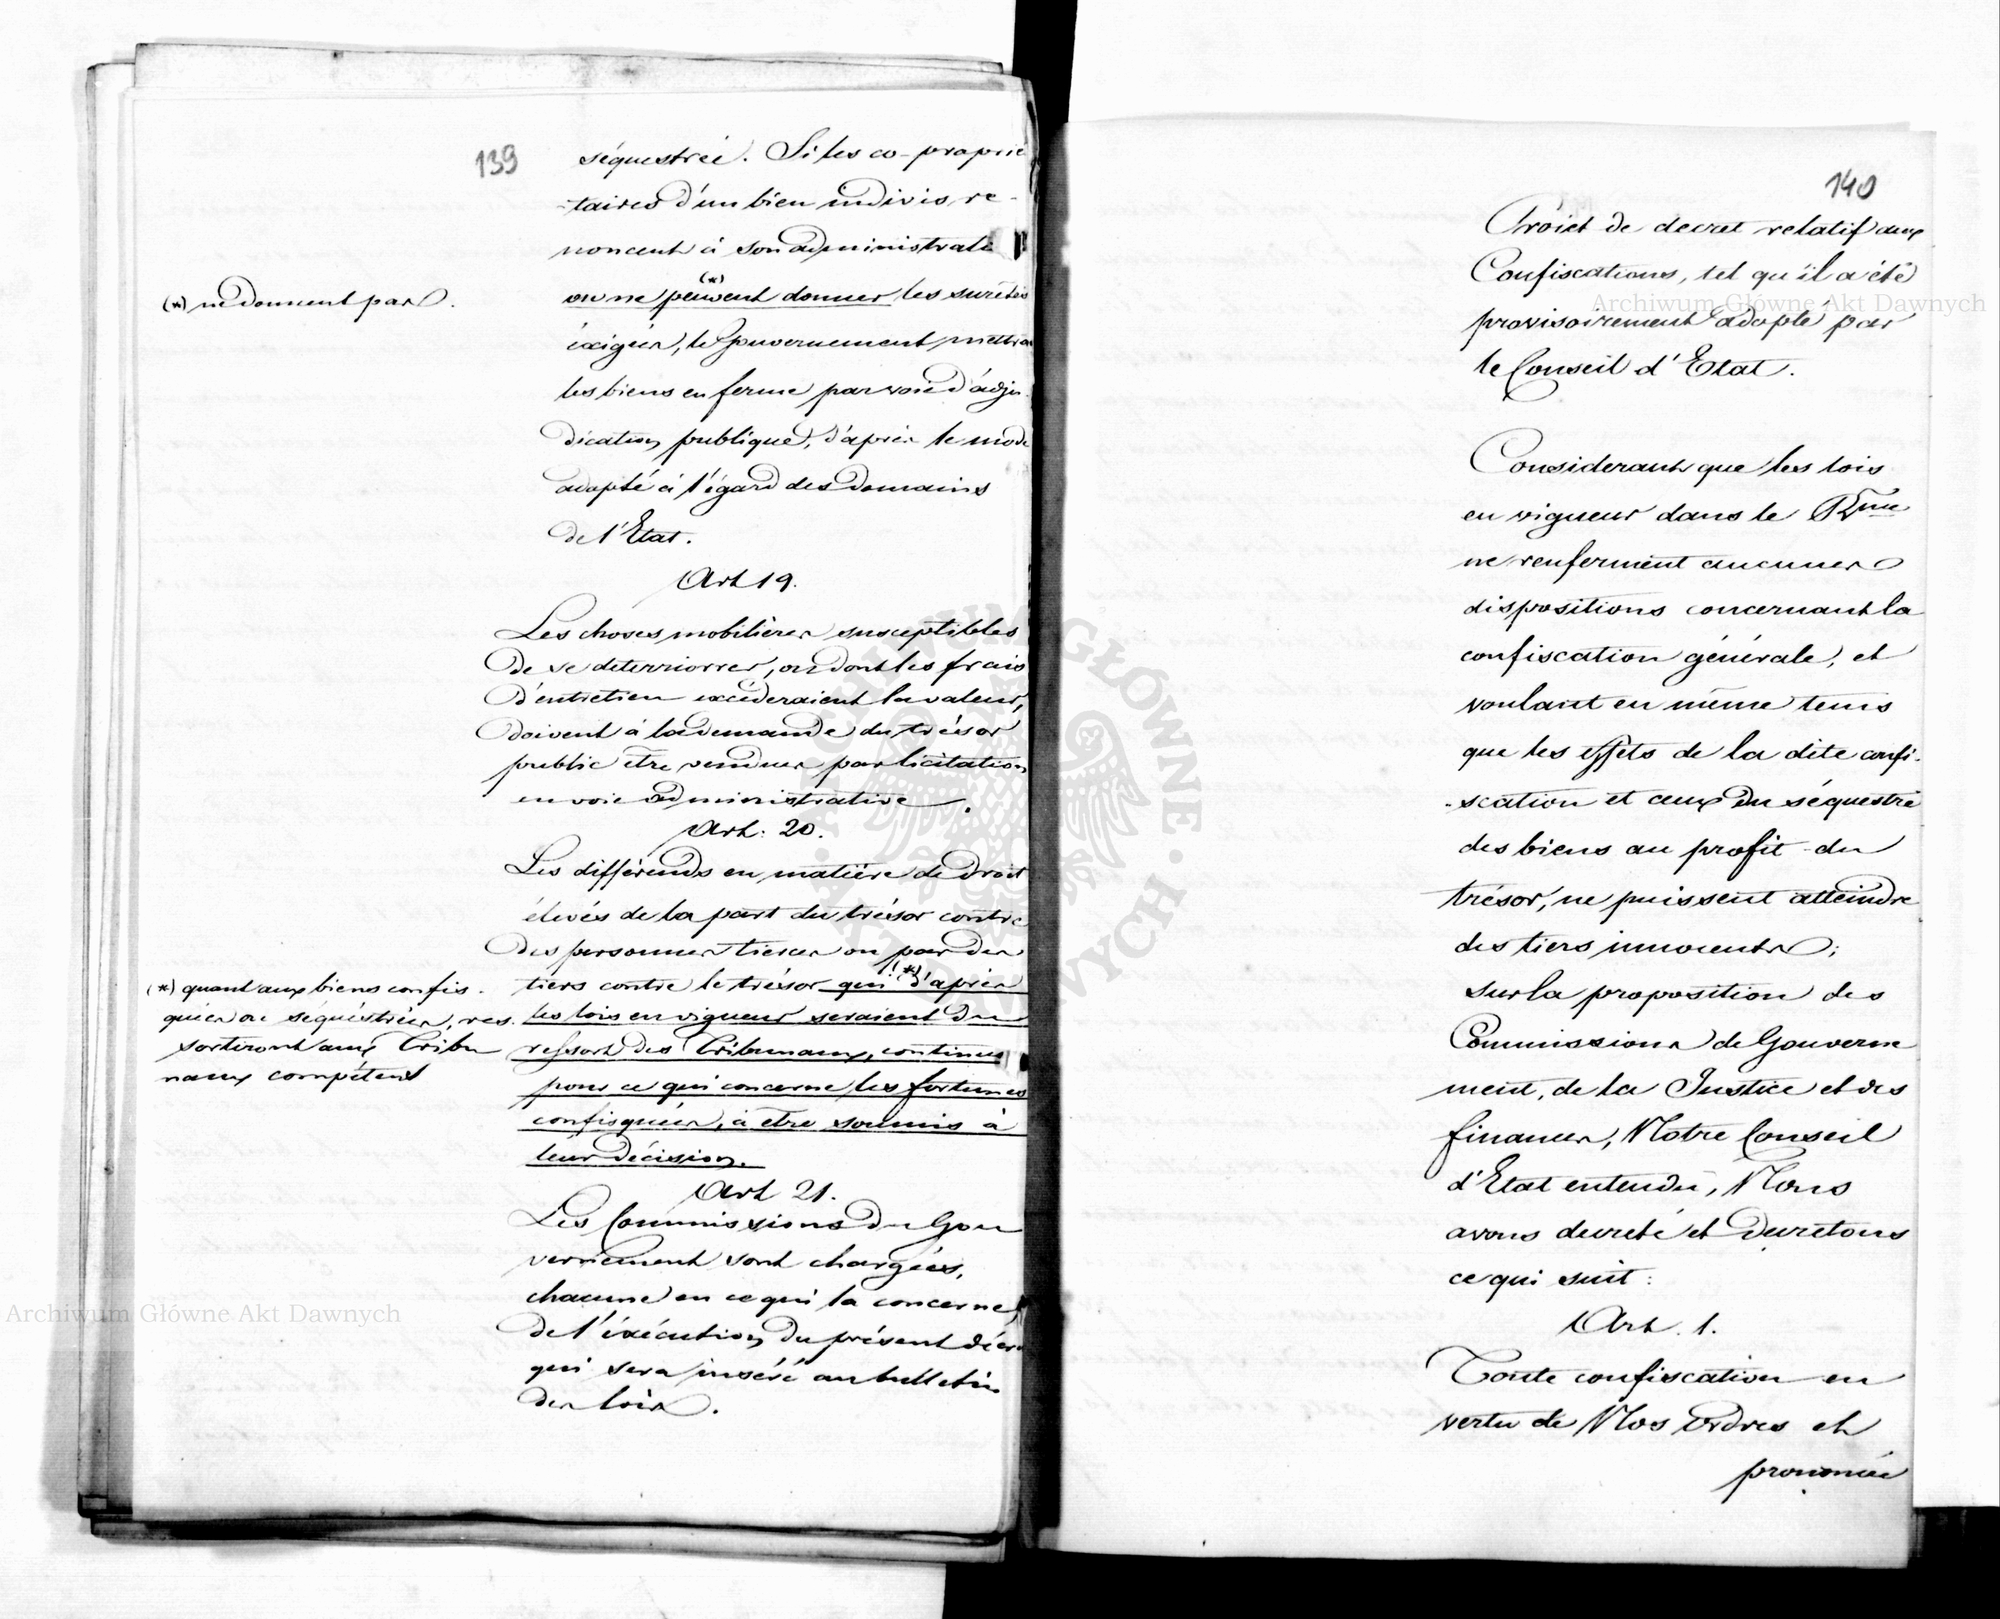 139
séquestrée. Si les co-proprié
-taires d'un bien indivis re-
noncent à son administrati
(*)
ou ne peuvent donner les suretés
(*) ne donnent pas.
éxigées, le Gouvernement mettra
les biens en ferme par voie d'adju-
dication publique, d'après le mode
adopté à l'égard des domains
de l'Etat.
Art 19.
Les choses mobilières susceptibles
de se deterriorrer, ou dont les frais
d'entretien excèderaient la valeur,
doivent à la demande du trésor
public etre vendues par licitation
en voie administrative.
Art: 20.
Les différends en matière de droit
élevés de la part du trésor contre
des personnes tierces ou par des
(*)
tiers contre le trésor qui d'après
les lois en vigueur seraient du
ressort des Tribunaux, continue
pour ce qui concerne les fortunes
confisquées, à etre soumis à
leur décision.
(*) quant aux biens confis-
quées ou séquestrées, res-
sortiront aux Tribu
naux compétens
Art 21.
Les Commissions du Gou
vernement sont chargées,
chacune en ce qui la concerne,
de l'éxécution du présent décre
qui sera inséré au bulletin
des loix.
140
Proiet de decret relatif aux
Confiscations, tel qu'il a été
provisoirement adopté par
le Conseil d'Etat.
Considerant que les lois
en vigueur dans le Rme
ne renferment aucunes
dispositions concernant la
confiscation générale, et
voulant en même tems
que les effets de la dite confi-
-scation et ceux du séquestre
des biens au profit du
trésor, ne puissent atteindre
des tiers innocents;
sur la proposition des
Commissions de Gouverne
ment, de la Justice et des
finances, Notre Conseil
d'Etat entendu, Nous
avons decreté et decretons
ce qui suit:
Art. 1.
Toute confiscation en
vertu de Nos ordres et
prononcée
Archiwum Główne Akt Dawnych
Archiwum Główne Akt Dawnych
ARCHIWUM GŁÓWNE AKT DAWNYCH